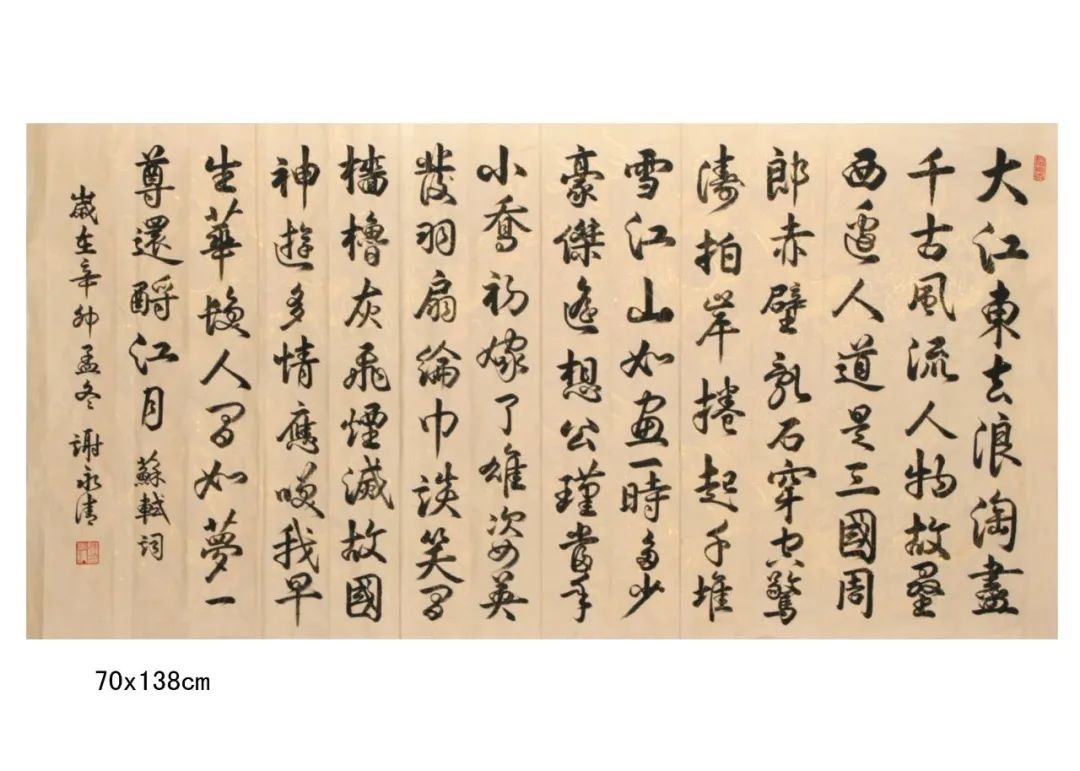 大江東去浪淘盡
千古風流人物故壘
西邊人道是三國周
郎赤壁亂石穿空驚
濤拍岸捲起千堆
雪江山如畫一時多少
豪傑遙想公瑾當年
小喬初嫁了雄姿英
發羽扇綸巾談笑間
檣櫓灰飛煙滅故國
神遊多情應咲我早
生華髮人間如夢一
尊還酹江月 蘇軾詞
歲在辛卯孟冬 謝永清
70x138cm